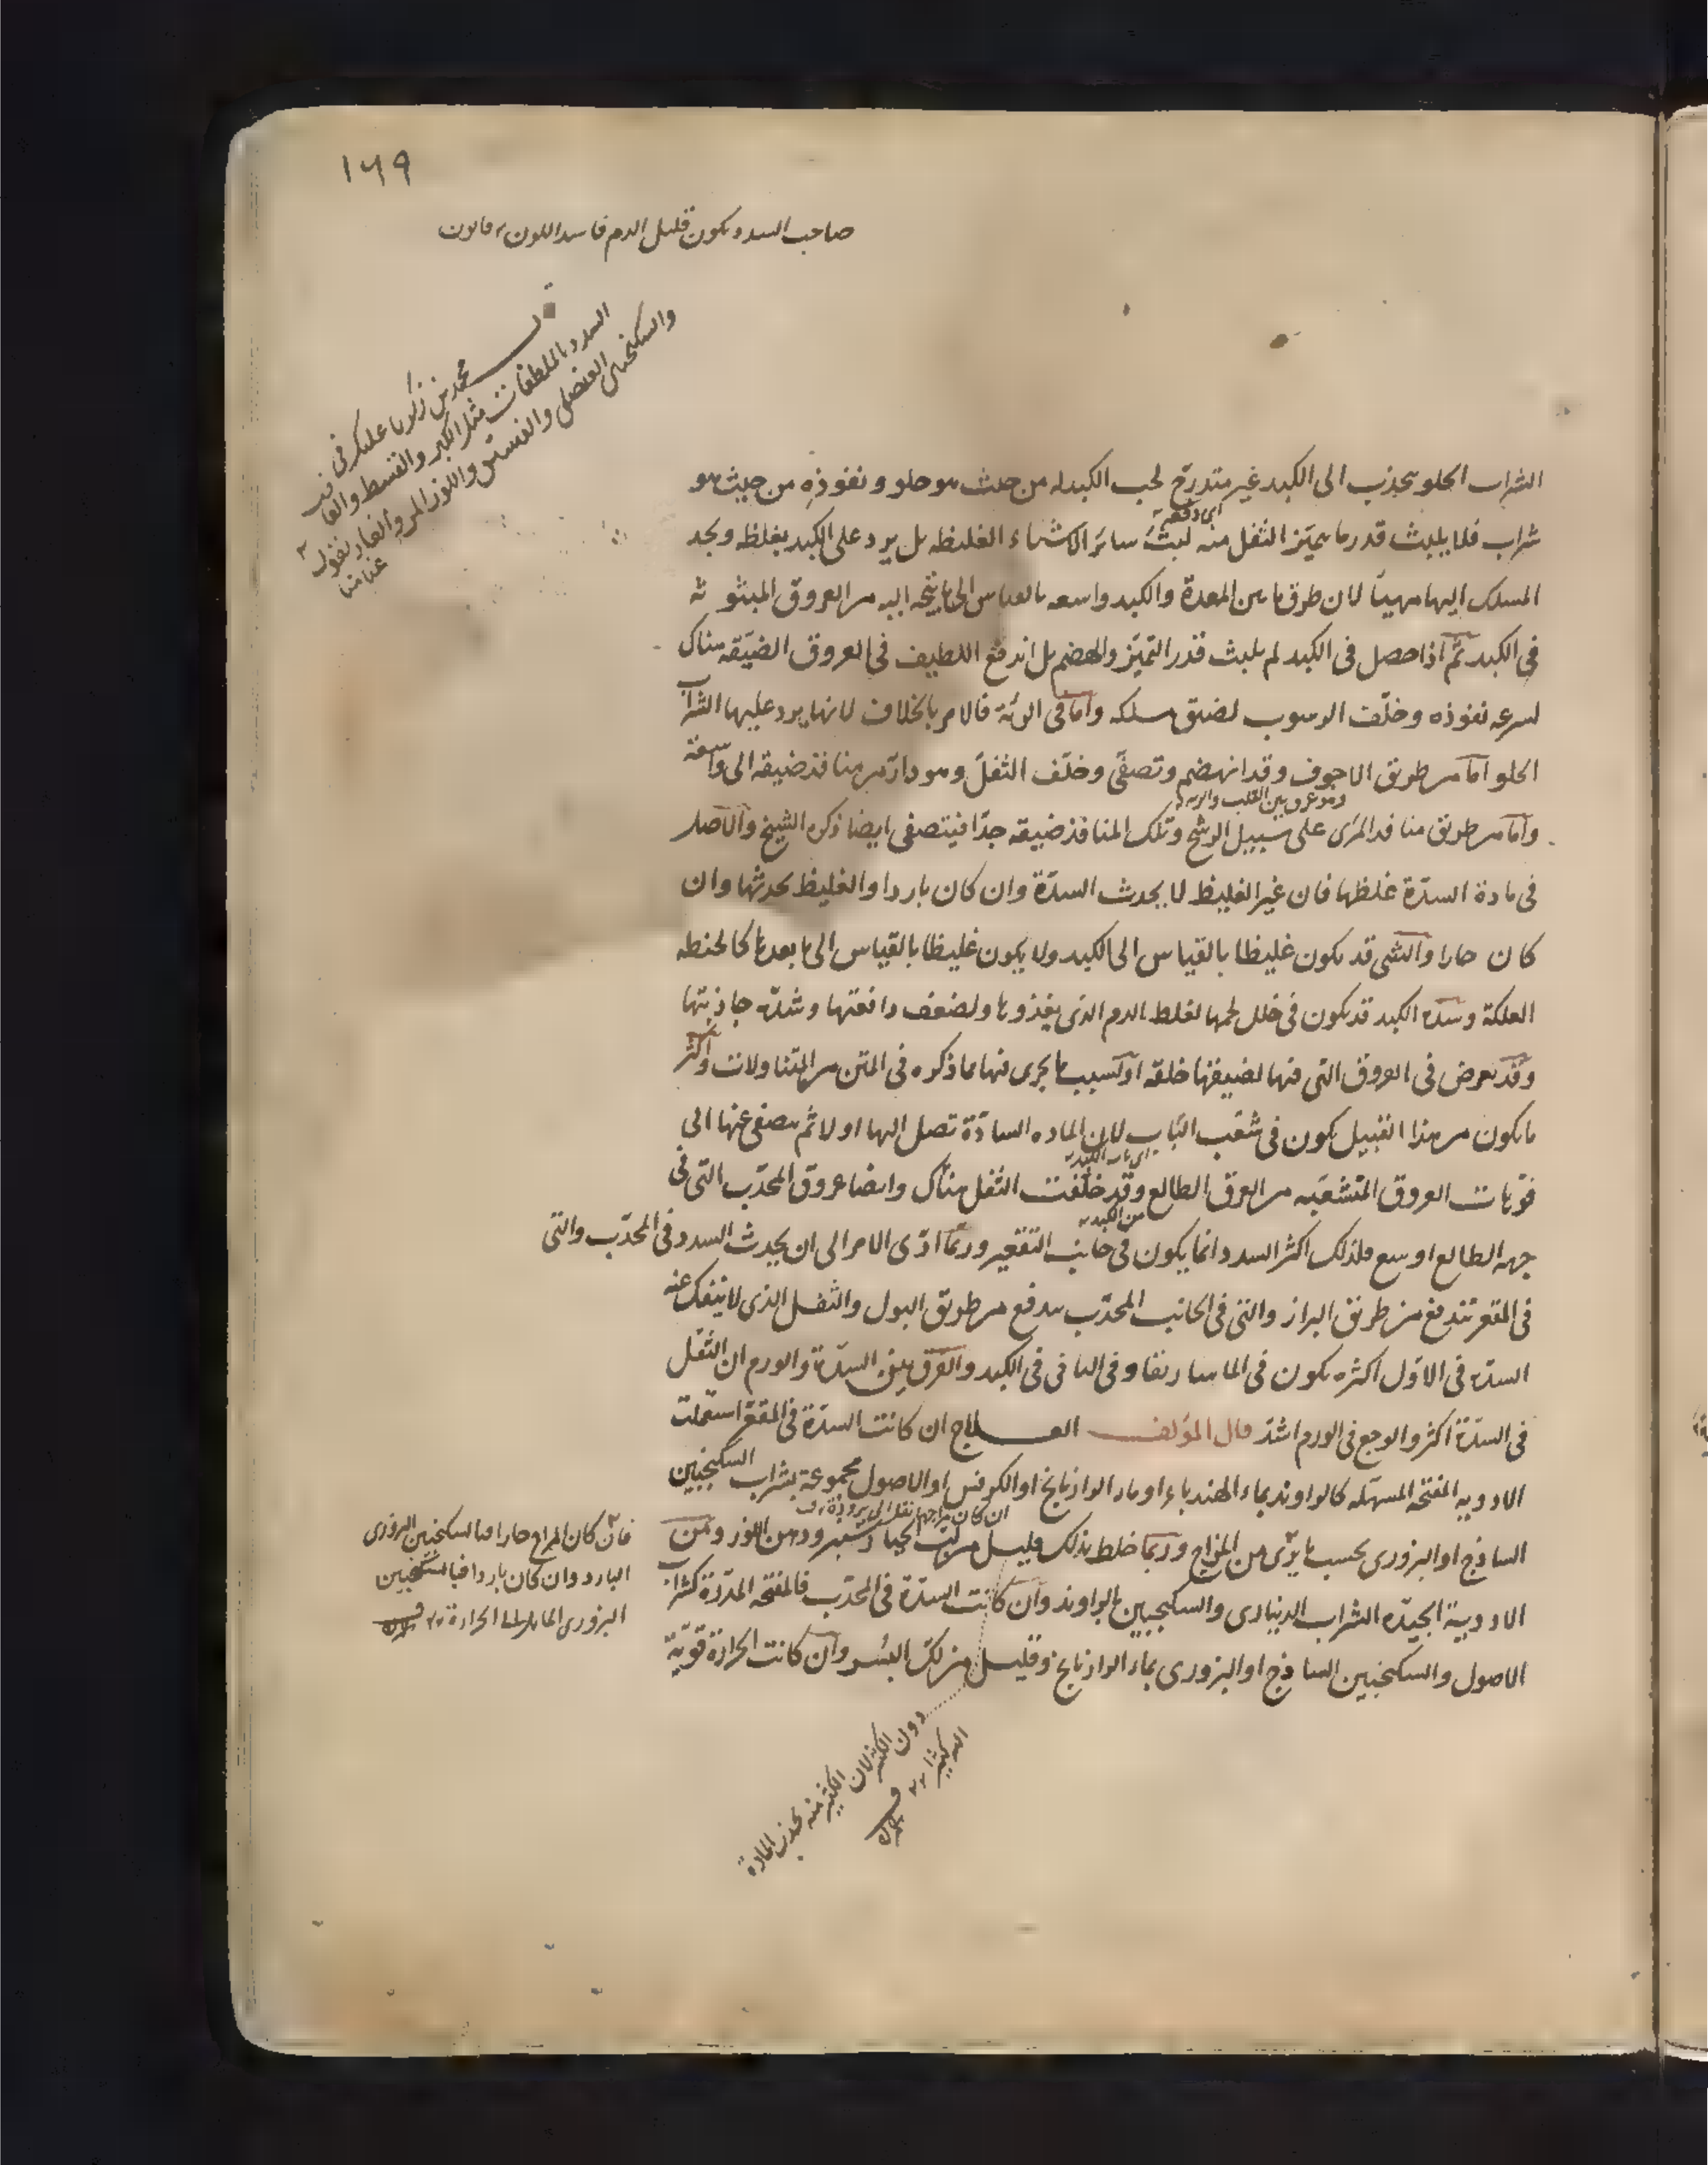 ١٦٩
صاحب السدد يكون قليل الدم فاسد اللون قانون
محمد بن زكريا عليك في
السدد بالملطفات مثل الكبر والقسط والغا
والسكنجبين العنصلي والفستق واللوز المر والغار يقول
الشراب الحلو ينجذب الى الكبد غير متدرج لحب الكبد له من حيث هو حلو ونفوذه من حيث هو
اى دفعة
شراب فلا يلبث قدر ما يميّز الثفل منه لبث سائر الاشياء الغليظه بل يرد على الكبد بغلظه ويجد
المسلك اليها مهيّأ لان طرق ما بين المعدة والكبد واسعه بالقياس الى ما يتجه اليه من العروق المبثوثه
فى الكبد ثم اذا حصل فى الكبد لم يلبث قدر التميّز والهضم بل اندفع اللطيف فى العروق الضيّقه هناك
لسرعه نفوذه وخلّف الرسوب لضيق مسلكه واما فى الرئه فالامر بالخلاف لانها يرد عليها الشراب
الحلو اما من طريق الاجوف وقد انهضم وتصفّى وخلّف الثفل وهو دارّ من منافذ ضيقه الى واسعة
وهو عرق بين القلب والريه
واما من طريق منافذ المرى على سبيل الرشح وتلك المنافذ ضيقه جدّا فيتصفى ايضا ذكره الشيخ والاصل
فى مادة السدّة غلظها فان غير الغليظ لا يحدث السدّة وان كان باردا والغليظ يحدثها وان
كان حارا والشى قد يكون غليظا بالقياس الى الكبد ولا يكون غليظا بالقياس الى ما بعدها كالحنطه
العلكة وسدد الكبد قد يكون فى خلل لحمها لغلظ الدم الذى يغذوها ولضعف دافعتها وشدّه جاذبتها
وقد يعرض فى العروق التى فيها لضيقها خلقه او لسبب ما يجرى فيها مما ذكره فى المتن من المتناولات واكثر
ما يكون من هذا القبيل يكون فى شعب الباب لان الماده السادّة تصل اليها اولا ثم يتصفى عنها الى
اى باب الكبد
فوّهات العروق المتشعّبه من العرق الطالع وقد خلّفت الثفل هناك وايضا عروق المحدّب التى فى
من الكبد
جهه الطالع اوسع فلذلك اكثر السدد انما يكون فى جانب التقعير وربما ادّى الامر الى ان يحدث السدد فى المحدّب والتى
فى المقعر تندفع من طريق البراز والتى فى الجانب المحدّب يندفع من طريق البول والثفل الذى لا ينفك عنه
السدّه فى الاول اكثره يكون فى الماساريقا وفى الثانى فى الكبد والفرق بين السدّة والورم ان الثقل
فى السدّة اكثر والوجع فى الورم اشدّ قال المؤلف العلاج ان كانت السدّة فى المقعّر استعملت
الادويه المفتحه المسهله كالراوند بماء الهندباء او ماء الرازيانج او الكرفس او الاصول مجموعة بشراب السكنجبين
الساذج او البزورى بحسب ما يرى من المزاج وربما خلط بذلك قليل من لب الخيار شنبر ودهن اللوز ومن
الادوية الجيّده الشراب الدينارى والسكنجبين بالراوند وان كانت السدّة فى المحدّب فالمفتحه المدرّة كشراب
الاصول والسكنجبين الساذج او البزورى بماء الرازيانج وقليل من لكّ البسر وان كانت الحرارة قويّة
فان كان المزاج حارا فبالسكنجبين البزورى
البارد وان كان باردا فبالسكنجبين
البزورى المائل الى الحرارة
دون الكثير لان الكثير منه يجذب المادة